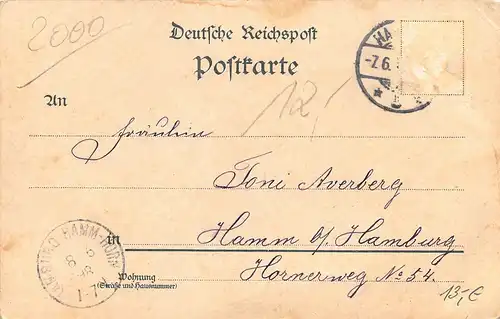 2000
Deutsche Reichspost
Postkarte
HA
-7.6.
An
12,-
Fräulein
Toni Averberg
in
Hamm b/ Hamburg
HAMM-HORN
8 6
98
1-
Wohnung
(Straße und Hausnummer)
Hornerweg No 54.
13,-€